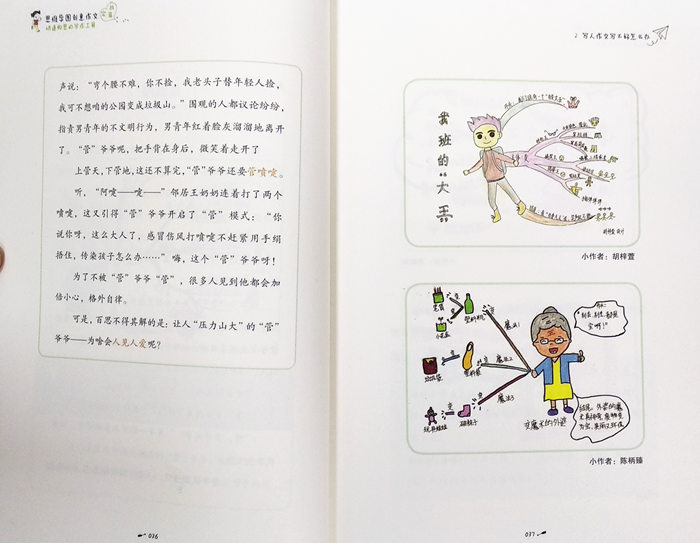 思维导图创意作文
快速构思的写作工具
声说：“弯个腰不难，你不捡，我老头子替年轻人捡，
我可不想咱的公园变成垃圾山。”围观的人都议论纷纷，
指责男青年的不文明行为，男青年红着脸灰溜溜地离开
了。“管”爷爷呢，把手背在身后，微笑着走开了……
上管天，下管地，这还不算完，“管”爷爷还要管喷嚏。
听，“阿嚏——嚏——”邻居王奶奶连着打了两个
喷嚏，这又引得“管”爷爷开启了“管”模式：“你
说你呀，这么大人了，感冒伤风打喷嚏不赶紧用手绢
捂住，传染孩子怎么办……”嗨，这个“管”爷爷呀！
为了不被“管”爷爷“管”，很多人见到他都会加
倍小心，格外自律。
可是，百思不得其解的是：让人“压力山大”的“管”
爷爷——为啥会人见人爱呢？
036
2 写人作文写不好怎么办
我班的“大王”
小作者：胡梓萱
笔筒
小花盆
塑料瓶
变
魔法1
垃圾袋
塑料袋
变
魔法2
玩具娃娃
破鞋子
变
魔法3
变魔术的外婆
小作者：陈柄臻
037